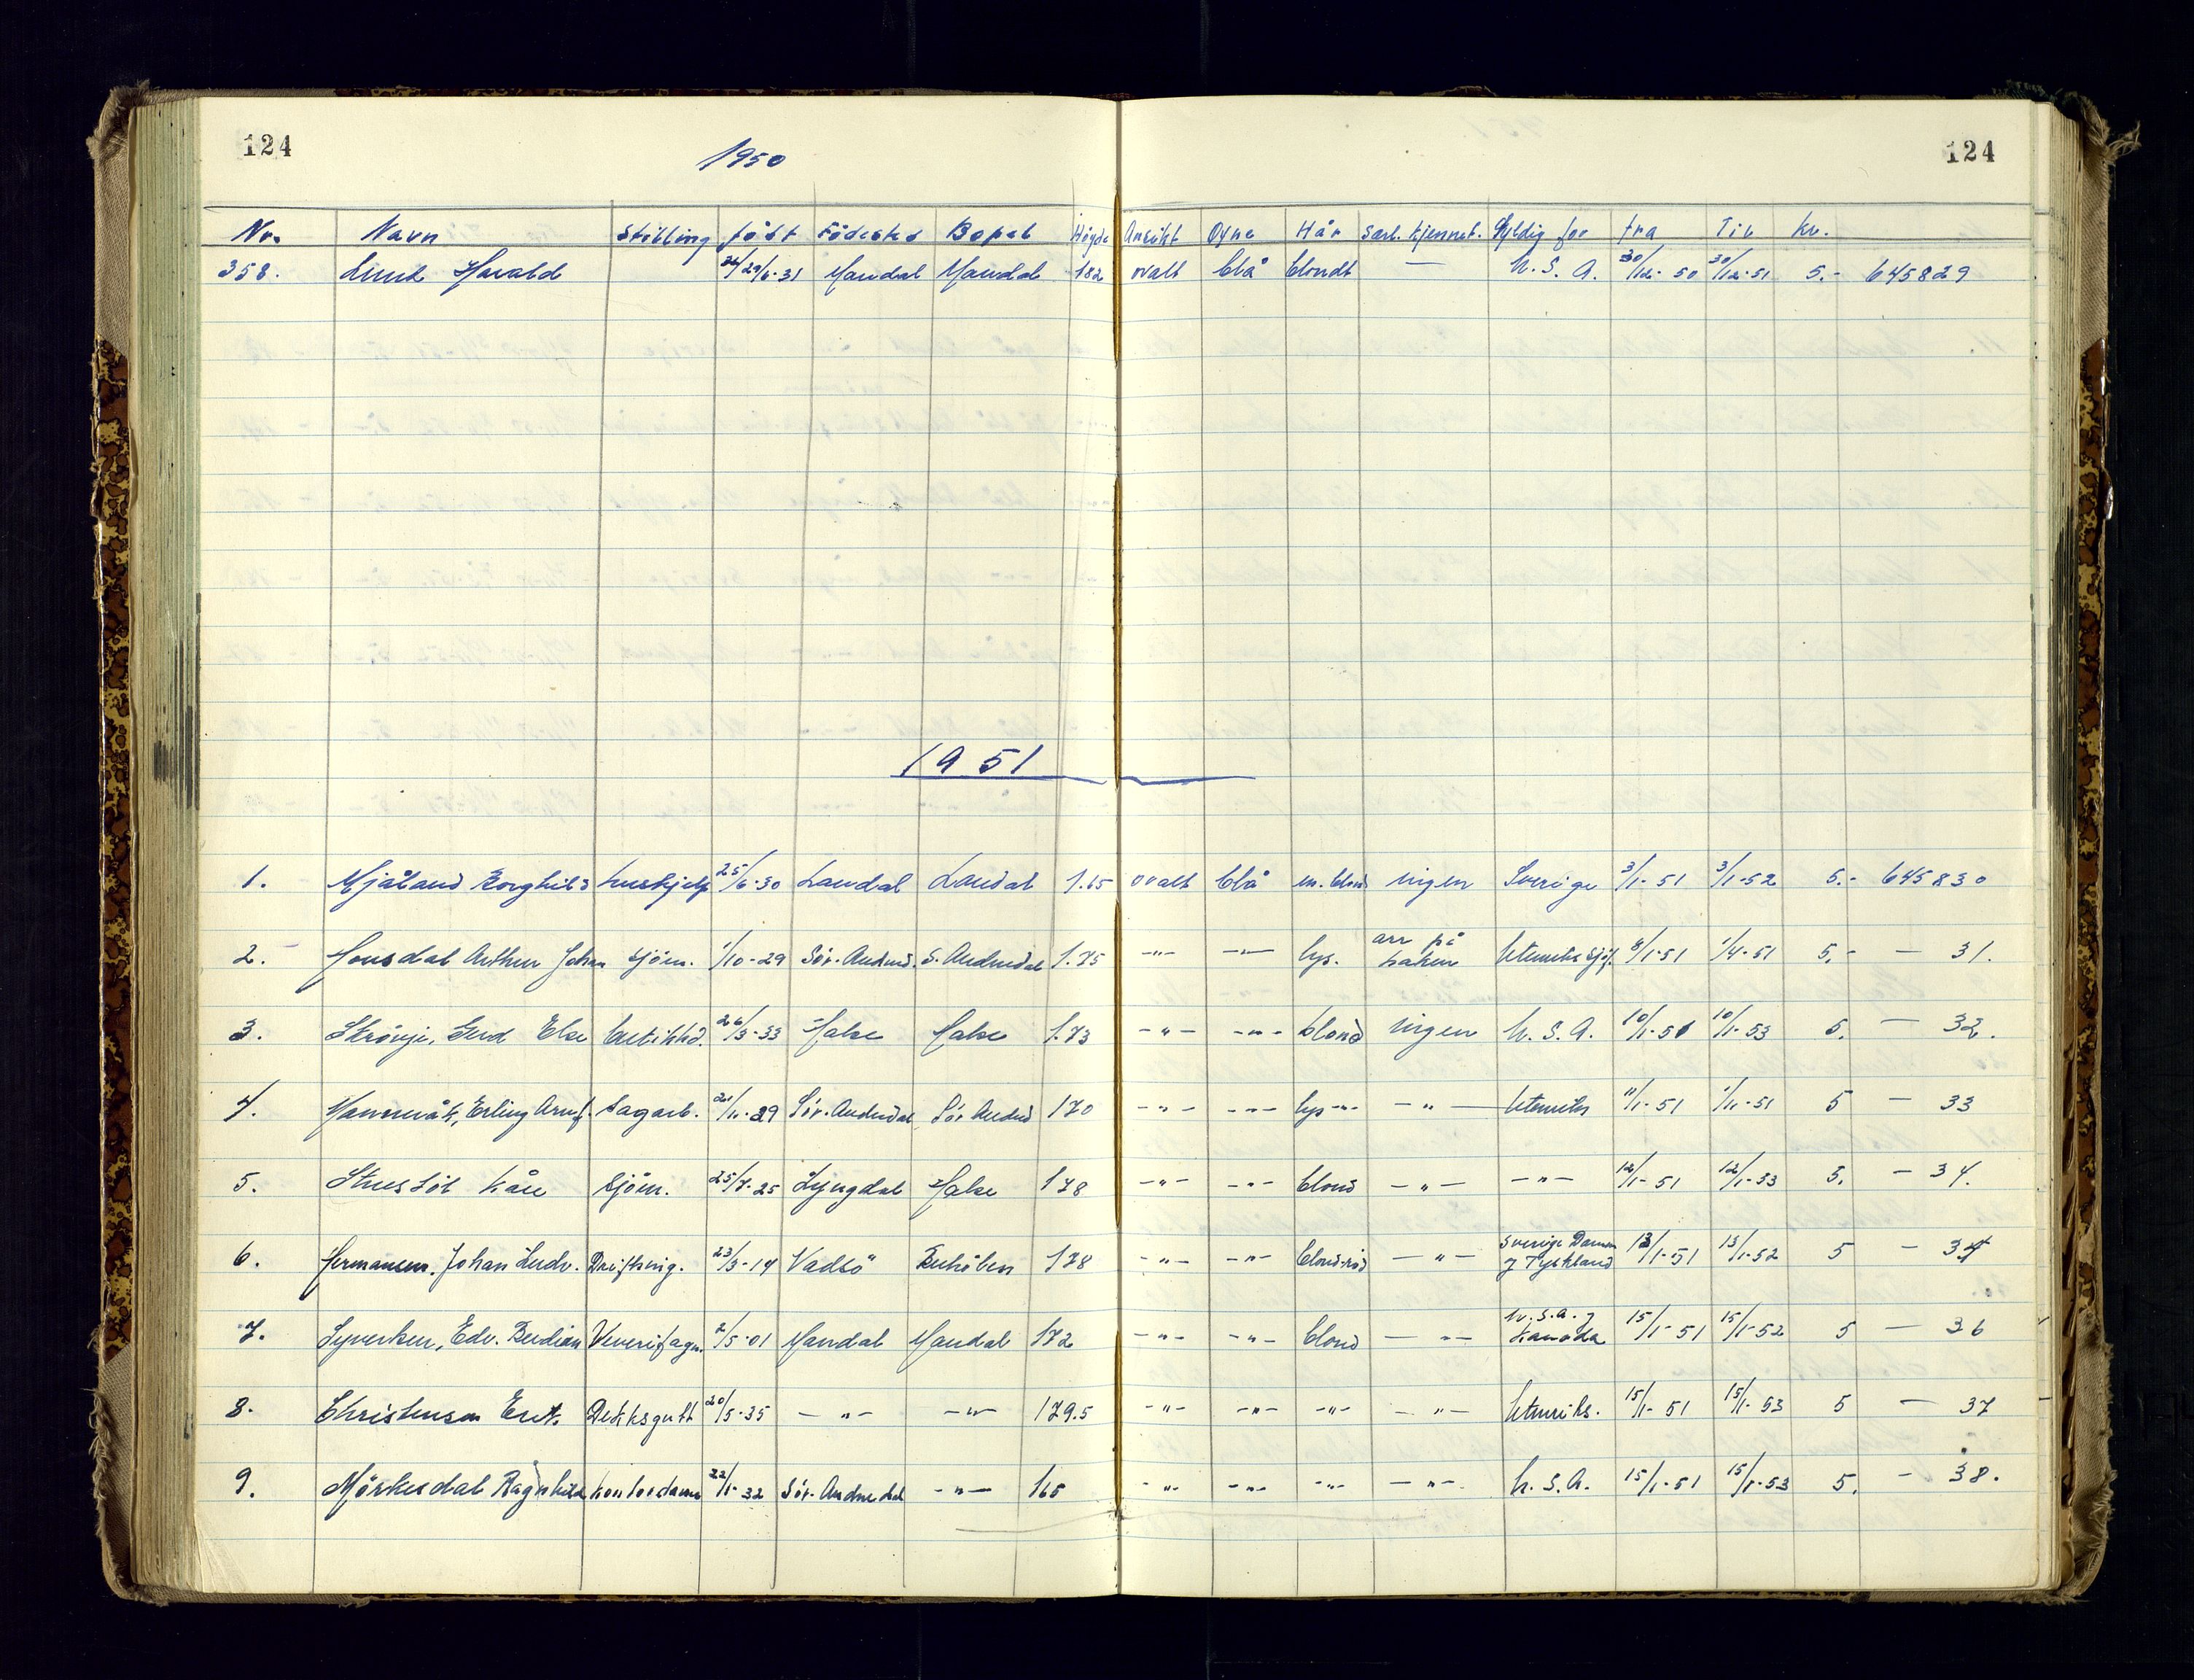 124
1950
124
Nr. Navn Stilling født Fødested Bopel Høyde Ansikt Øyne Hår særl. kjennet. Gyldig for fra Til kr.
358. Lund Harald 29/6-31 Mandal Mandal 182 ovalt blå blondt — U.S.A. 30/12-50 30/12-51 5.- 645829
1951
1. Mjåland Borghild huskjelp 25/6-30 Laudal Laudal 1.65 ovalt blå m.blond ingen Sverige 3/1-51 3/1-52 5.- 645830
2. Arthur Johan sjöm. 1/10-29 Sör-Audned. S.Audnedal 1.75 -"- -"- lys. arr på haken Utenriks sjöf. 8/1-51 1/4-51 5.- — 31.
3. Else 26/3-33 Halse Halse 1.73 -"- -"- blond ingen U.S.A. 10/1-51 10/1-53 5. — 32.
4. Erling sagarb. 29 Sör-Audnedal Sör Audned 170 -"- -"- lys -"- -"- Utenriks 11/1-51 1/11-51 5 — 33
5. Kåre Sjöm. 25/7-25 Lyngdal Halse 178 -"- -"- blond -"- -"- 12/1-51 12/1-53 5. — 34.
6. Hermansen, Johan Ludv. Drifting. 23/3-14 Vadsö 178 -"- -"- blond-röd -"- Sverige Danm. & Tyskland 13/1-51 13/1-52 5 — 34
7. Syvertsen, Edv. Berdian Veverifagm. 2/5-01 Mandal Mandal 172 -"- -"- blond -"- U.S.A. & Kanada 15/1-51 15/1-52 5 — 36
8. Christensen Erik Dekksgutt 20/5-35 -"- -"- 179.5 -"- -"- -"- -"- Utenriks. 15/1-51 15/1-53 5 — 37
9. Mörkesdal Ragnhild kontordame 32 Sör-Audnedal -"- 165 -"- -"- -"- -"- U.S.A. 15/1-51 15/1-53 5. - 38.